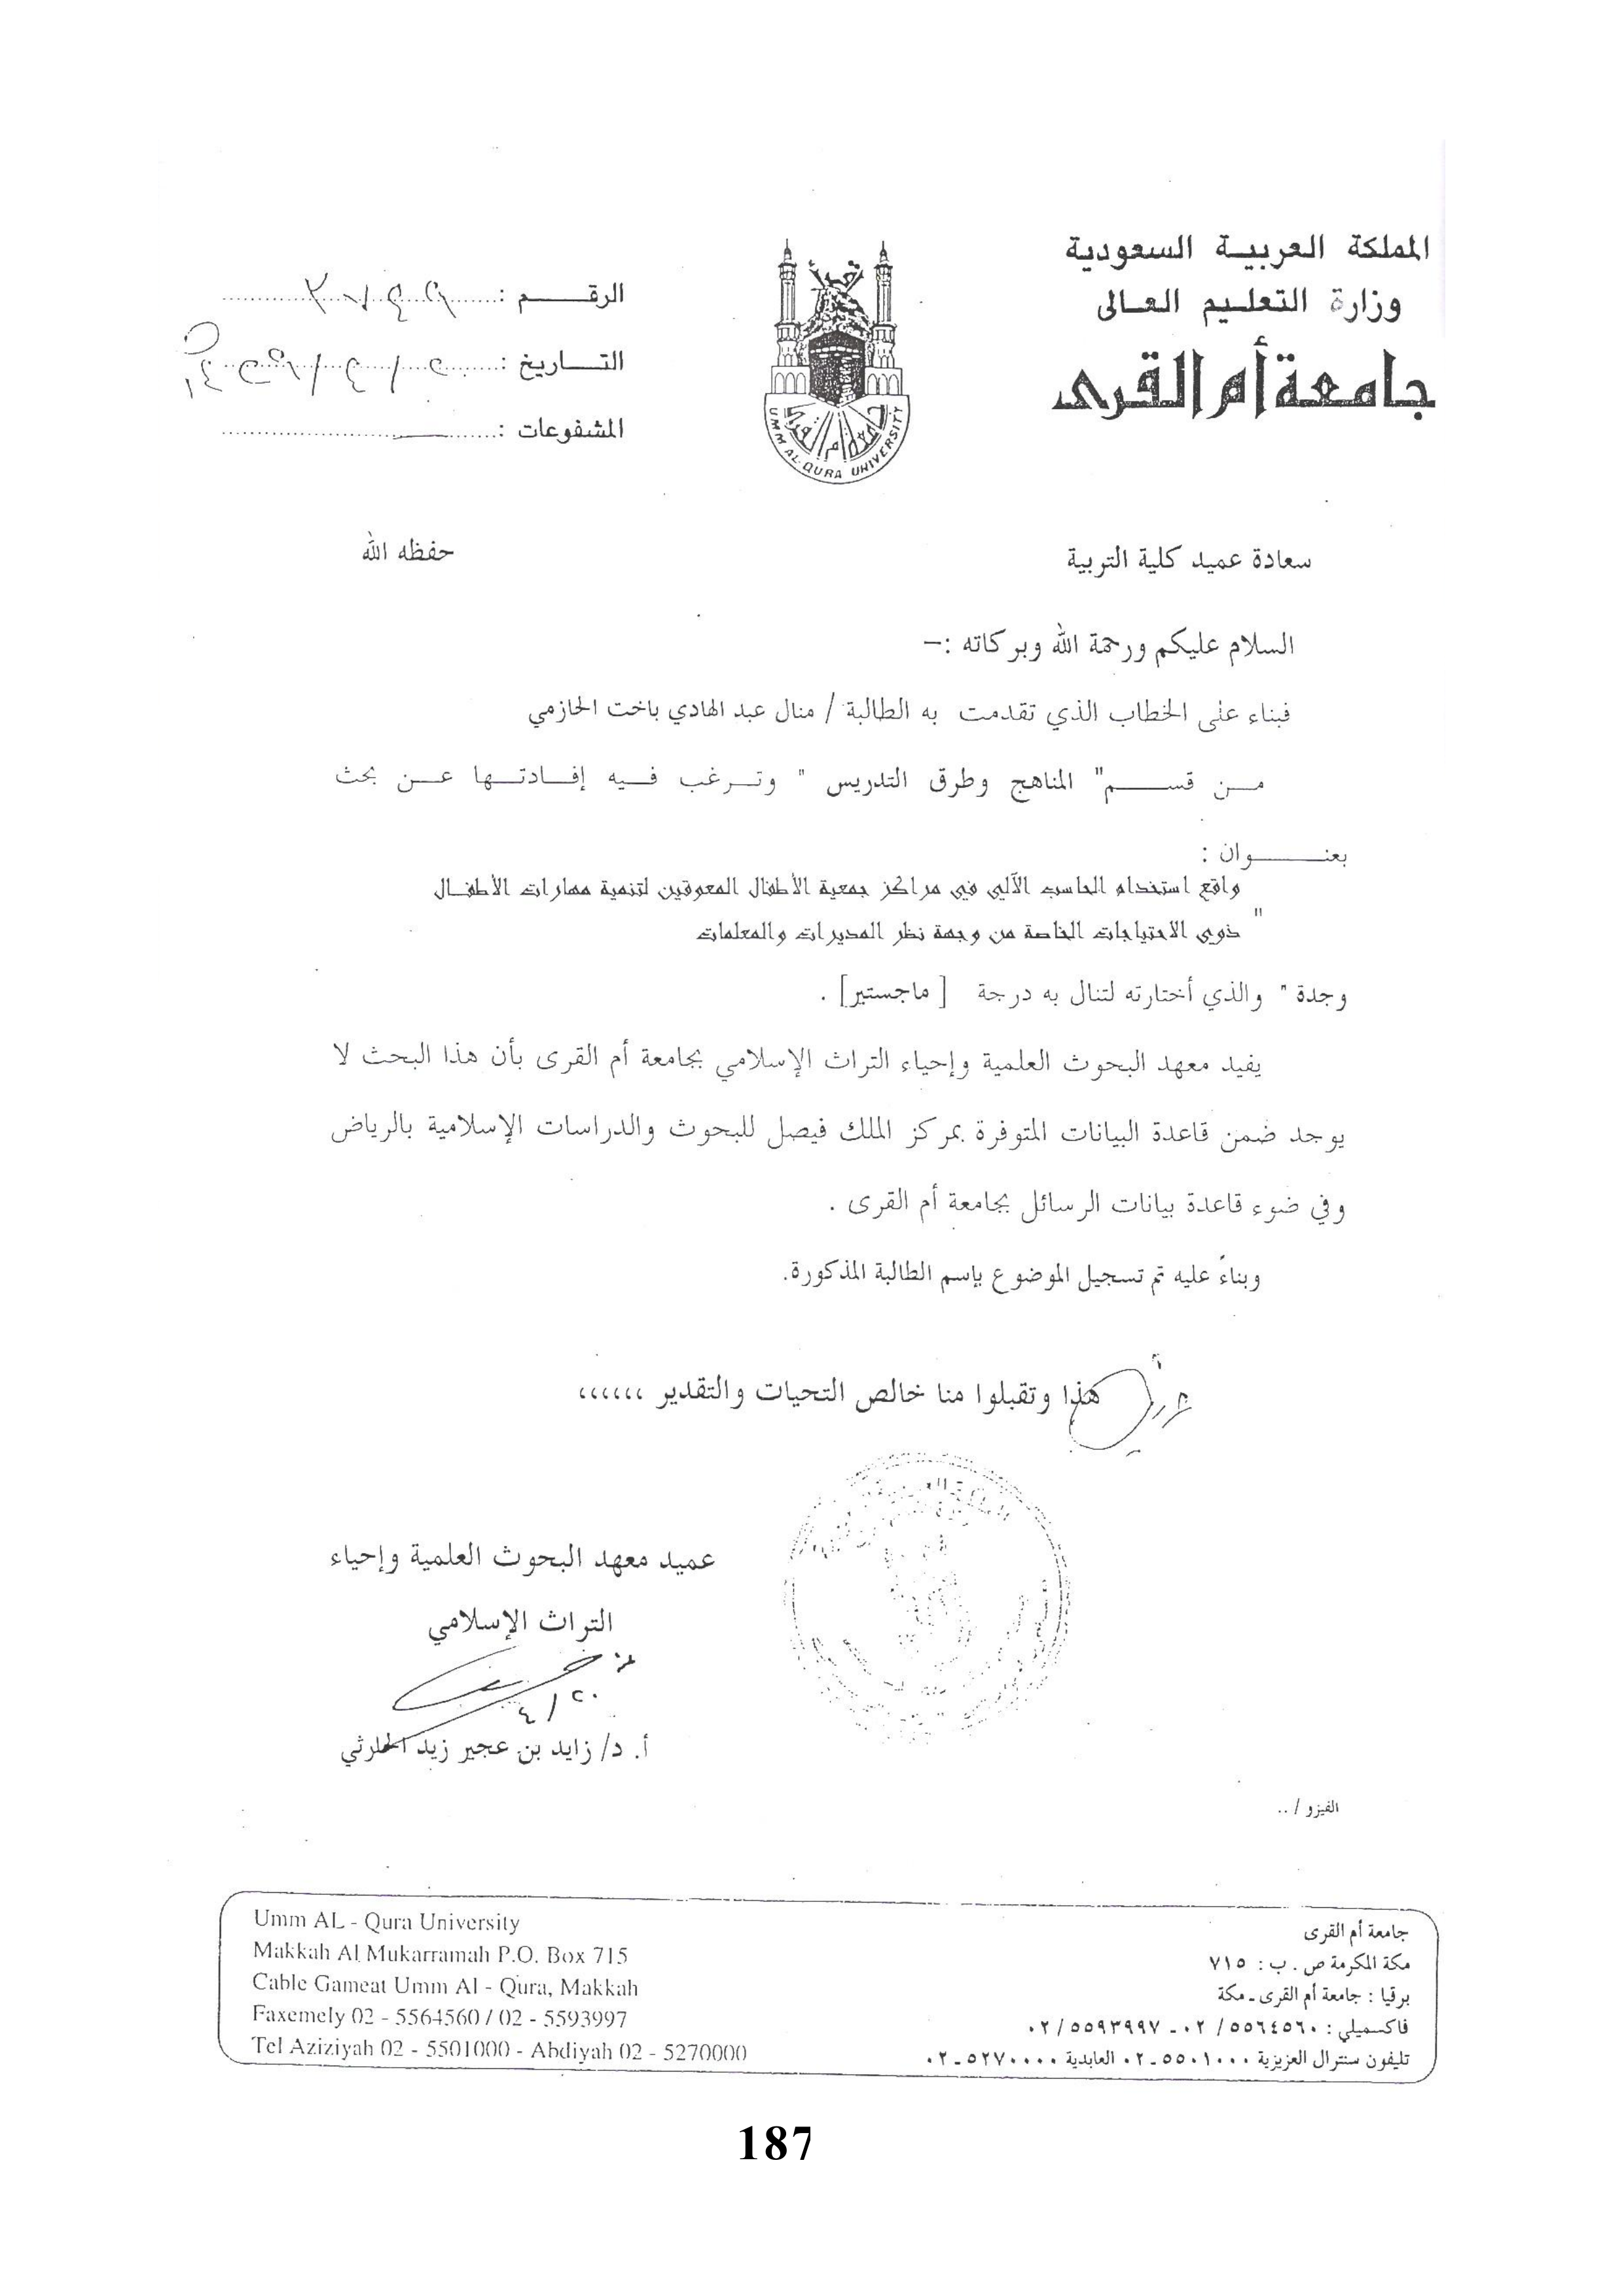 المملكة العربية السعودية
وزارة التعليم العالى
جامعة أم القرى
جامعة أم القرى
UMM AL-QURA UNIVERSITY
الرقم :
التاريخ :
المشفوعات :
سعادة عميد كلية التربية حفظه الله
السلام عليكم ورحمة الله وبركاته :–
فبناء على الخطاب الذي تقدمت به الطالبة / منال عبد الهادي باخت الحازمي
من قسم " المناهج وطرق التدريس " وترغب فيه إفادتها عن بحث
بعنوان :
واقع استخدام الحاسب الآلي في مراكز جمعية الأطفال المعوقين لتنمية مهارات الأطفال
" ذوي الاحتياجات الخاصة من وجهة نظر المديرات والمعلمات
وجدة " والذي أختارته لتنال به درجة [ ماجستير] .
يفيد معهد البحوث العلمية وإحياء التراث الإسلامي بجامعة أم القرى بأن هذا البحث لا
يوجد ضمن قاعدة البيانات المتوفرة بمركز الملك فيصل للبحوث والدراسات الإسلامية بالرياض
وفي ضوء قاعدة بيانات الرسائل بجامعة أم القرى .
وبناءً عليه تم تسجيل الموضوع بإسم الطالبة المذكورة.
هذا وتقبلوا منا خالص التحيات والتقدير ،،،،،،
عميد معهد البحوث العلمية وإحياء
التراث الإسلامي
٤/٢٠
أ. د/ زايد بن عجير زيد الحارثي
الفيزو /..
Umm AL - Qura University
Makkah Al Mukarramah P.O. Box 715
Cable Gameat Umm Al - Qura, Makkah
Faxemely 02 - 5564560 / 02 - 5593997
Tel Aziziyah 02 - 5501000 - Abdiyah 02 - 5270000
جامعة أم القرى
مكة المكرمة ص . ب : ٧١٥
برقيا : جامعة أم القرى ـ مكة
فاكسميلي : ٥٥٦٤٥٦٠ /٠٢ ـ ٥٥٩٣٩٩٧ /٠٢
تليفون سنترال العزيزية ٥٥٠١٠٠٠ـ٠٢ العابدية ٥٢٧٠٠٠٠ـ٠٢
187